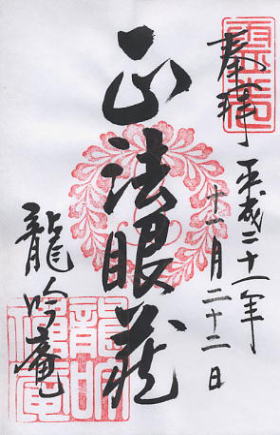 奉拝 平成二十一年
十一月二十二日
正法眼蔵
龍吟庵